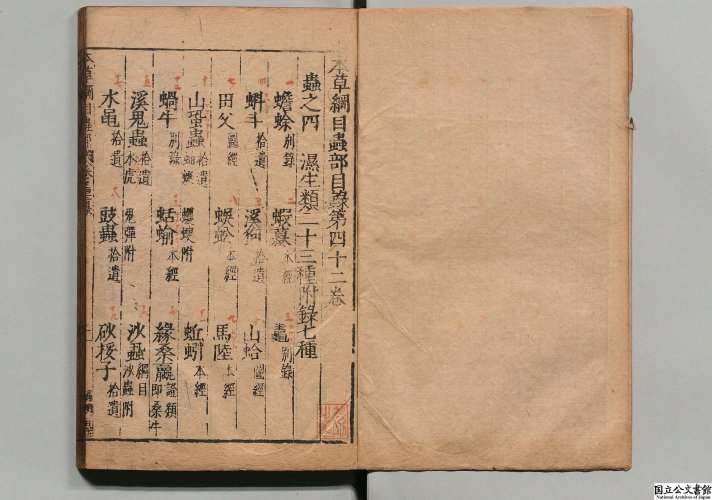 本草綱目蟲部目錄第四十二卷
蟲之四 濕生類二十三種附錄七種
蟾蜍別錄 蝦蟇本經 鼃別錄
蝌斗拾遺 溪狗拾遺 山蛤圖經
田父圖經 蜈蚣本經 馬陸本經
山蛩蟲拾遺 蚰蜒 蠼螋附 蚯蚓本經
蝸牛別錄 蛞蝓本經 緣桑蠃證類 即桑牛
溪鬼蟲拾遺 水虎 鬼彈附 沙蝨綱目 沙蟲附
水黽拾遺 豉蟲拾遺 砂挼子拾遺
本草綱目蟲部
国立公文書館
National Archives of Japan